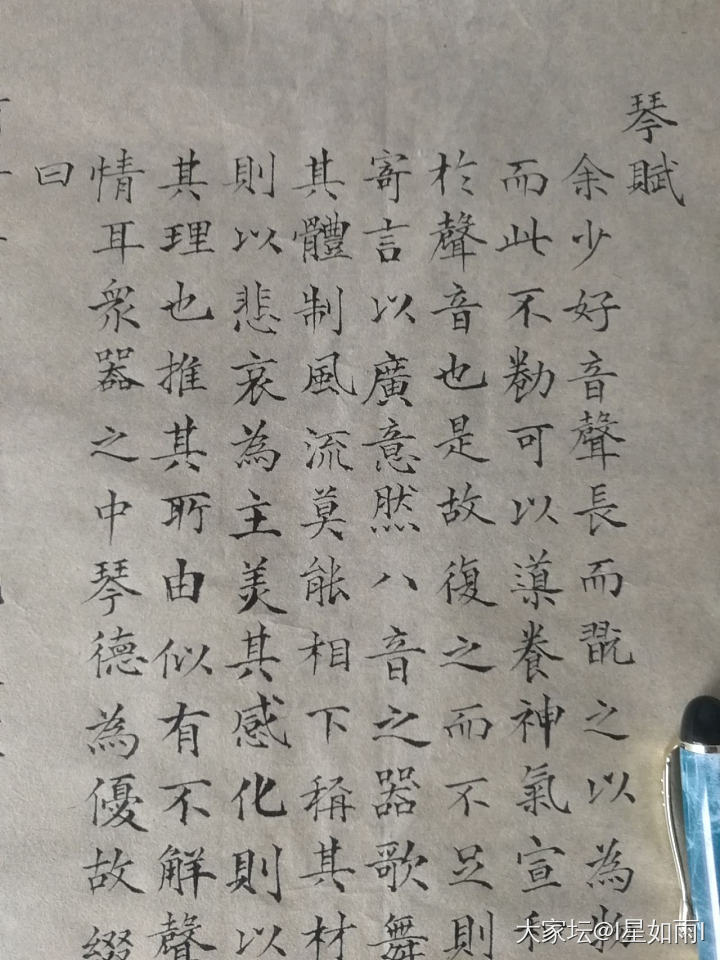 琴賦
余少好音聲長而翫之以為物
而此不勌可以導養神氣宣和
於聲音也是故復之而不足則
寄言以廣意然八音之器歌舞
其體制風流莫能相下稱其材
則以悲哀為主美其感化則以
其理也推其所由似有不解聲
情耳衆器之中琴德為優故綴
曰
大家坛@I星如雨I